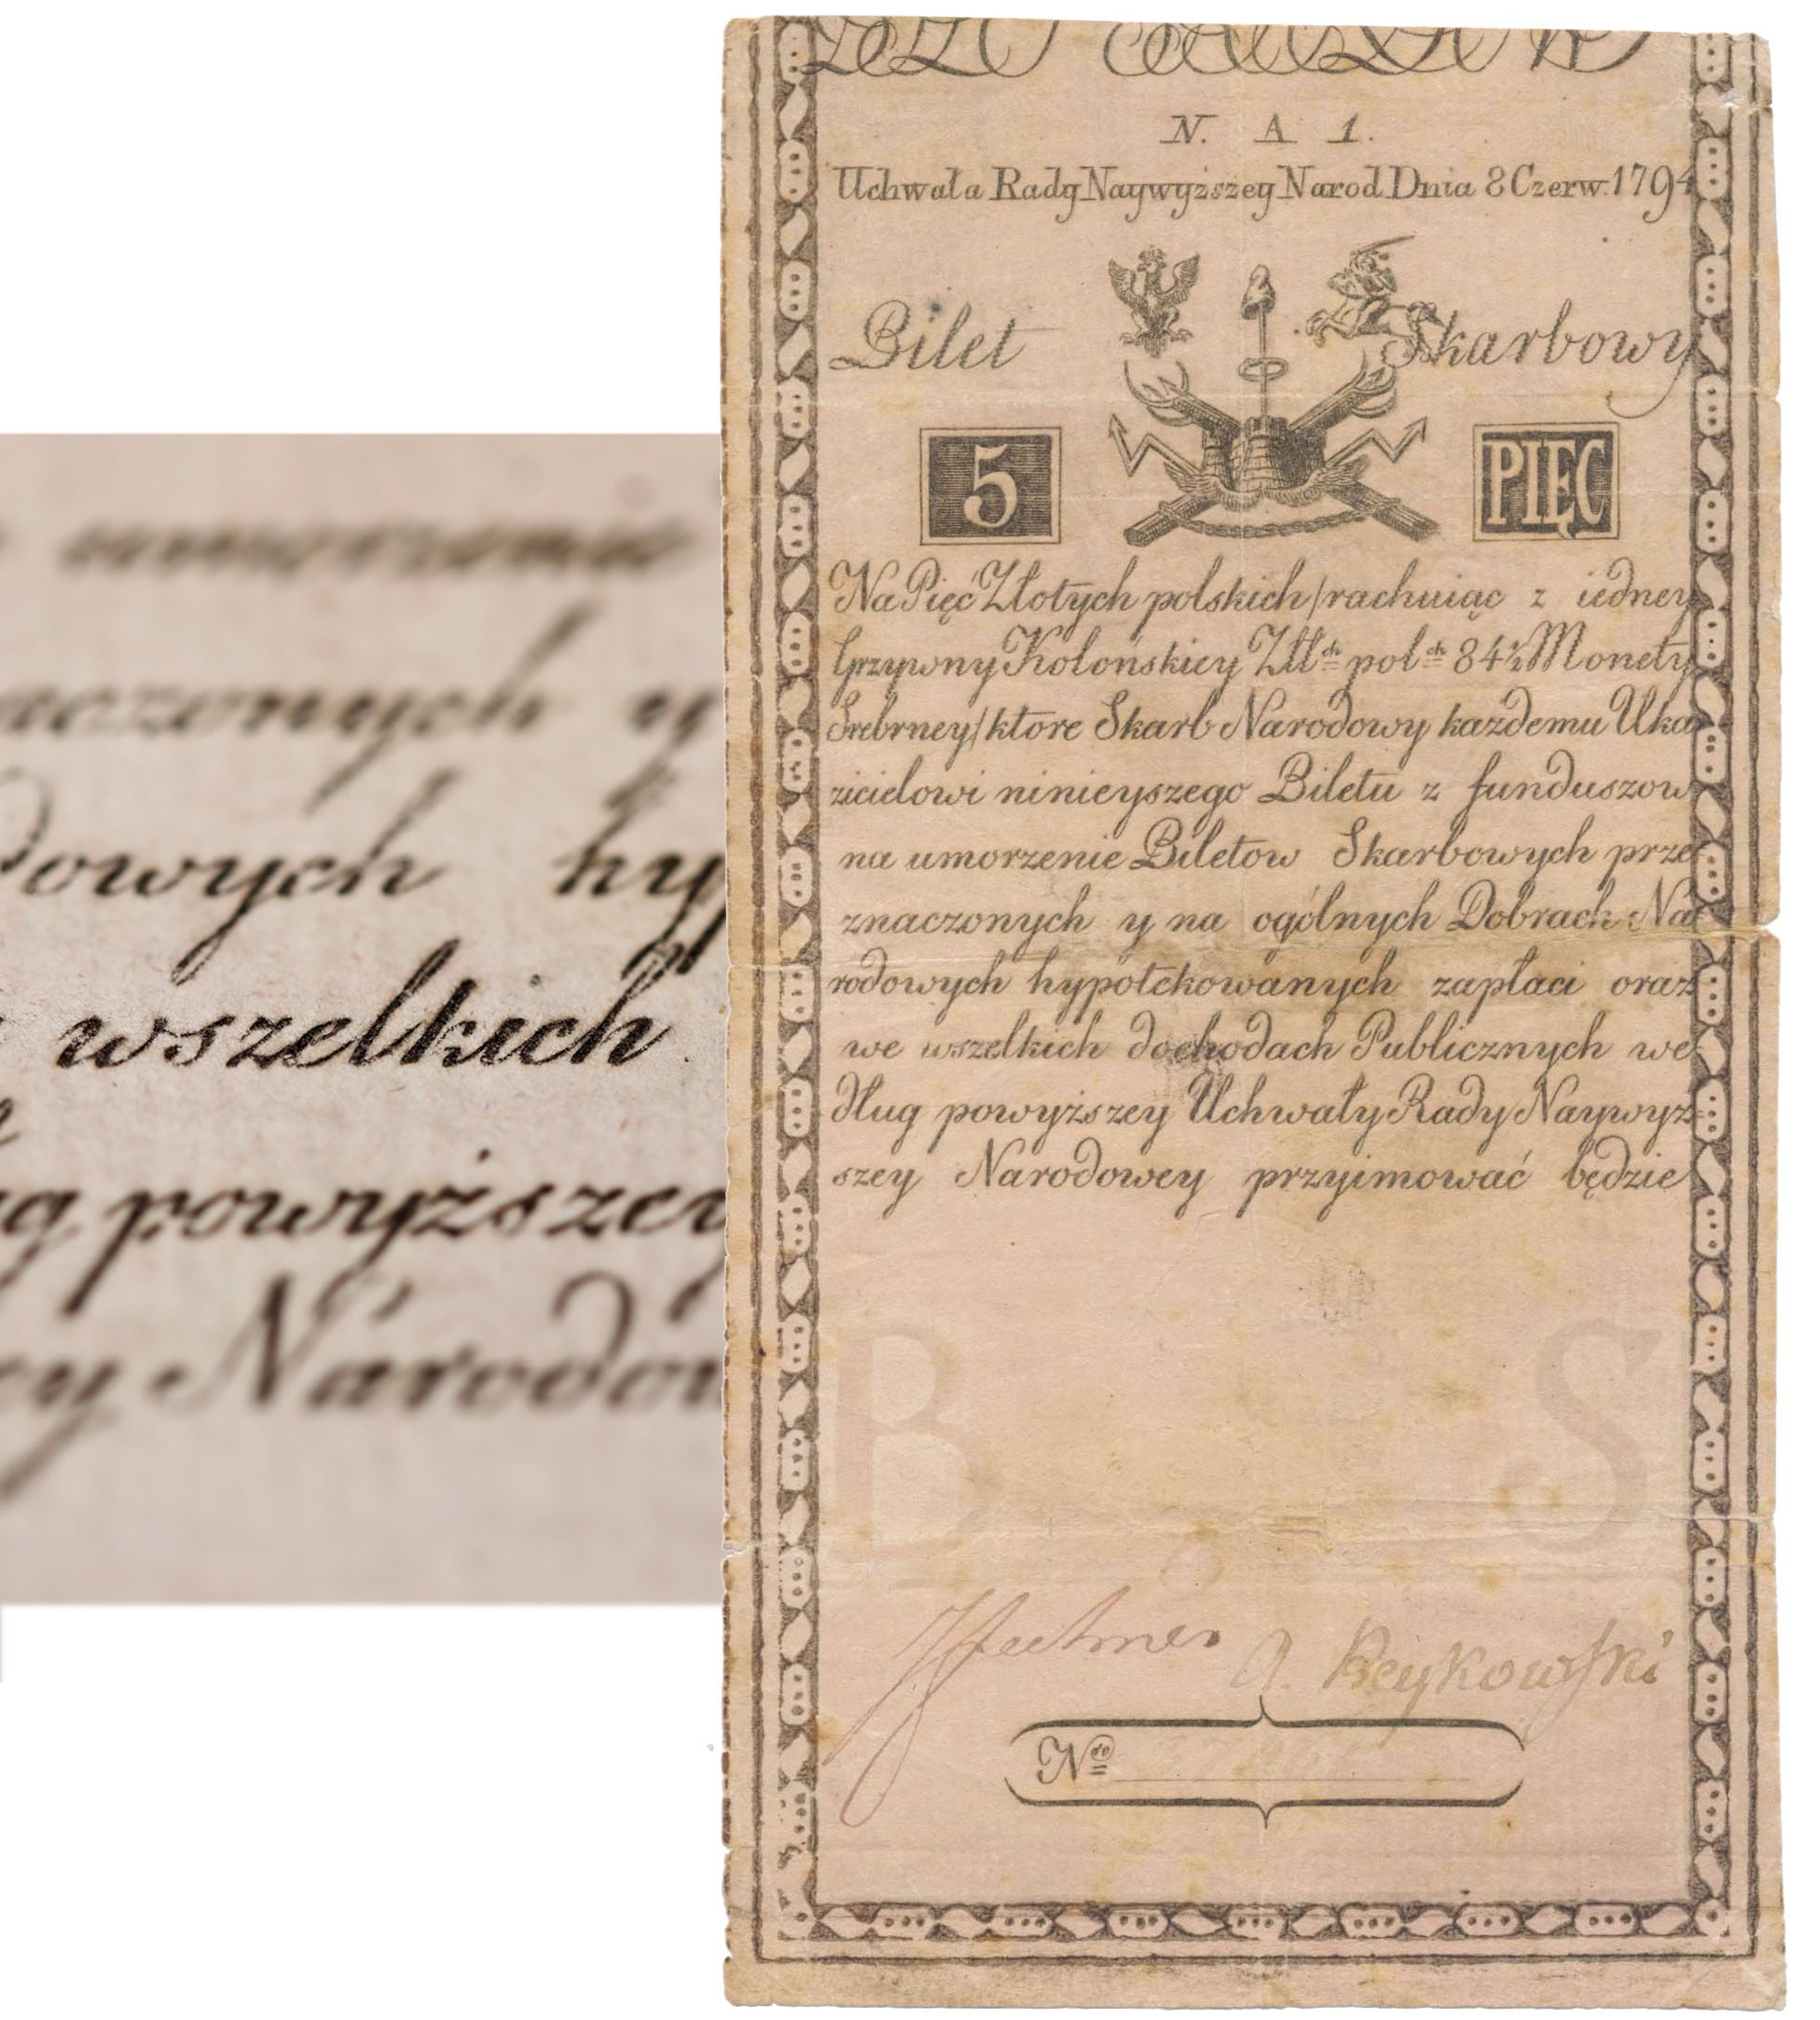 umorzenie
aczonych y
dowych hyp
wszelkich
ug powyższey
ey Narodow
N. A 1.
Uchwała Rady Naywyższey Narod. Dnia 8 Czerw. 1794
Bilet Skarbowy
5 PIĘC
Na Pięć Złotych polskich/rachuiąc z iedney
Grzywny Kolońskiey Złł ch pol ch 84½ Monety
Srebrney/ktore Skarb Narodowy każdemu Uka
zicielowi ninieyszego Biletu z funduszow
na umorzenie Biletow Skarbowych prze
znaczonych y na ogólnych Dobrach Na
rodowych hypotekowanych zapłaci oraz
we wszelkich dochodach Publicznych we
dług powyższey Uchwały Rady Naywyż
szey Narodowey przyimować będzie
B S
A. Reykowski
N ro